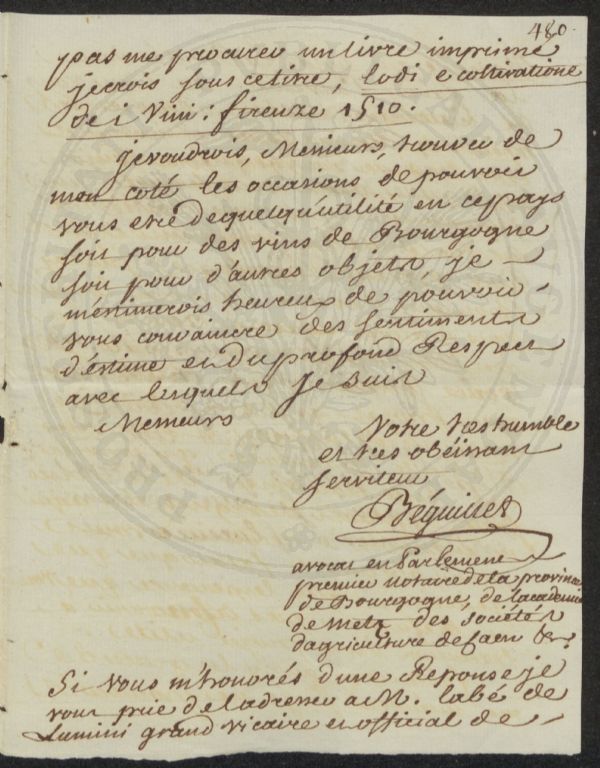 480.
pas me procurer un livre imprimé
je crois sous ce titre, lodi e coltivatione
dei Vini: firenze 1510.
je voudrois, Messieurs, trouver de
mon coté les occasions de pouvoir
vous etre de quelqu'utilité en ce pays
soit pour des vins de Bourgogne
soit pour d'autres objets, je
m'estimerois heureux de pouvoir
vous convaincre des sentiments
d'estime et du profond Respect
avec lesquels Je suis
Messieurs
Votre tres humble
et tres obéissant
serviteur
Béguillet
avocat en Parlement
premier notaire de la province
de Bourgogne, de l'academie
de Metz des sociétés
d'agriculture de Caen &c.
Si vous m'honorés d'une Reponse je
vous prie de l'adresser a M. labé de
Lumini grand vicaire et official de